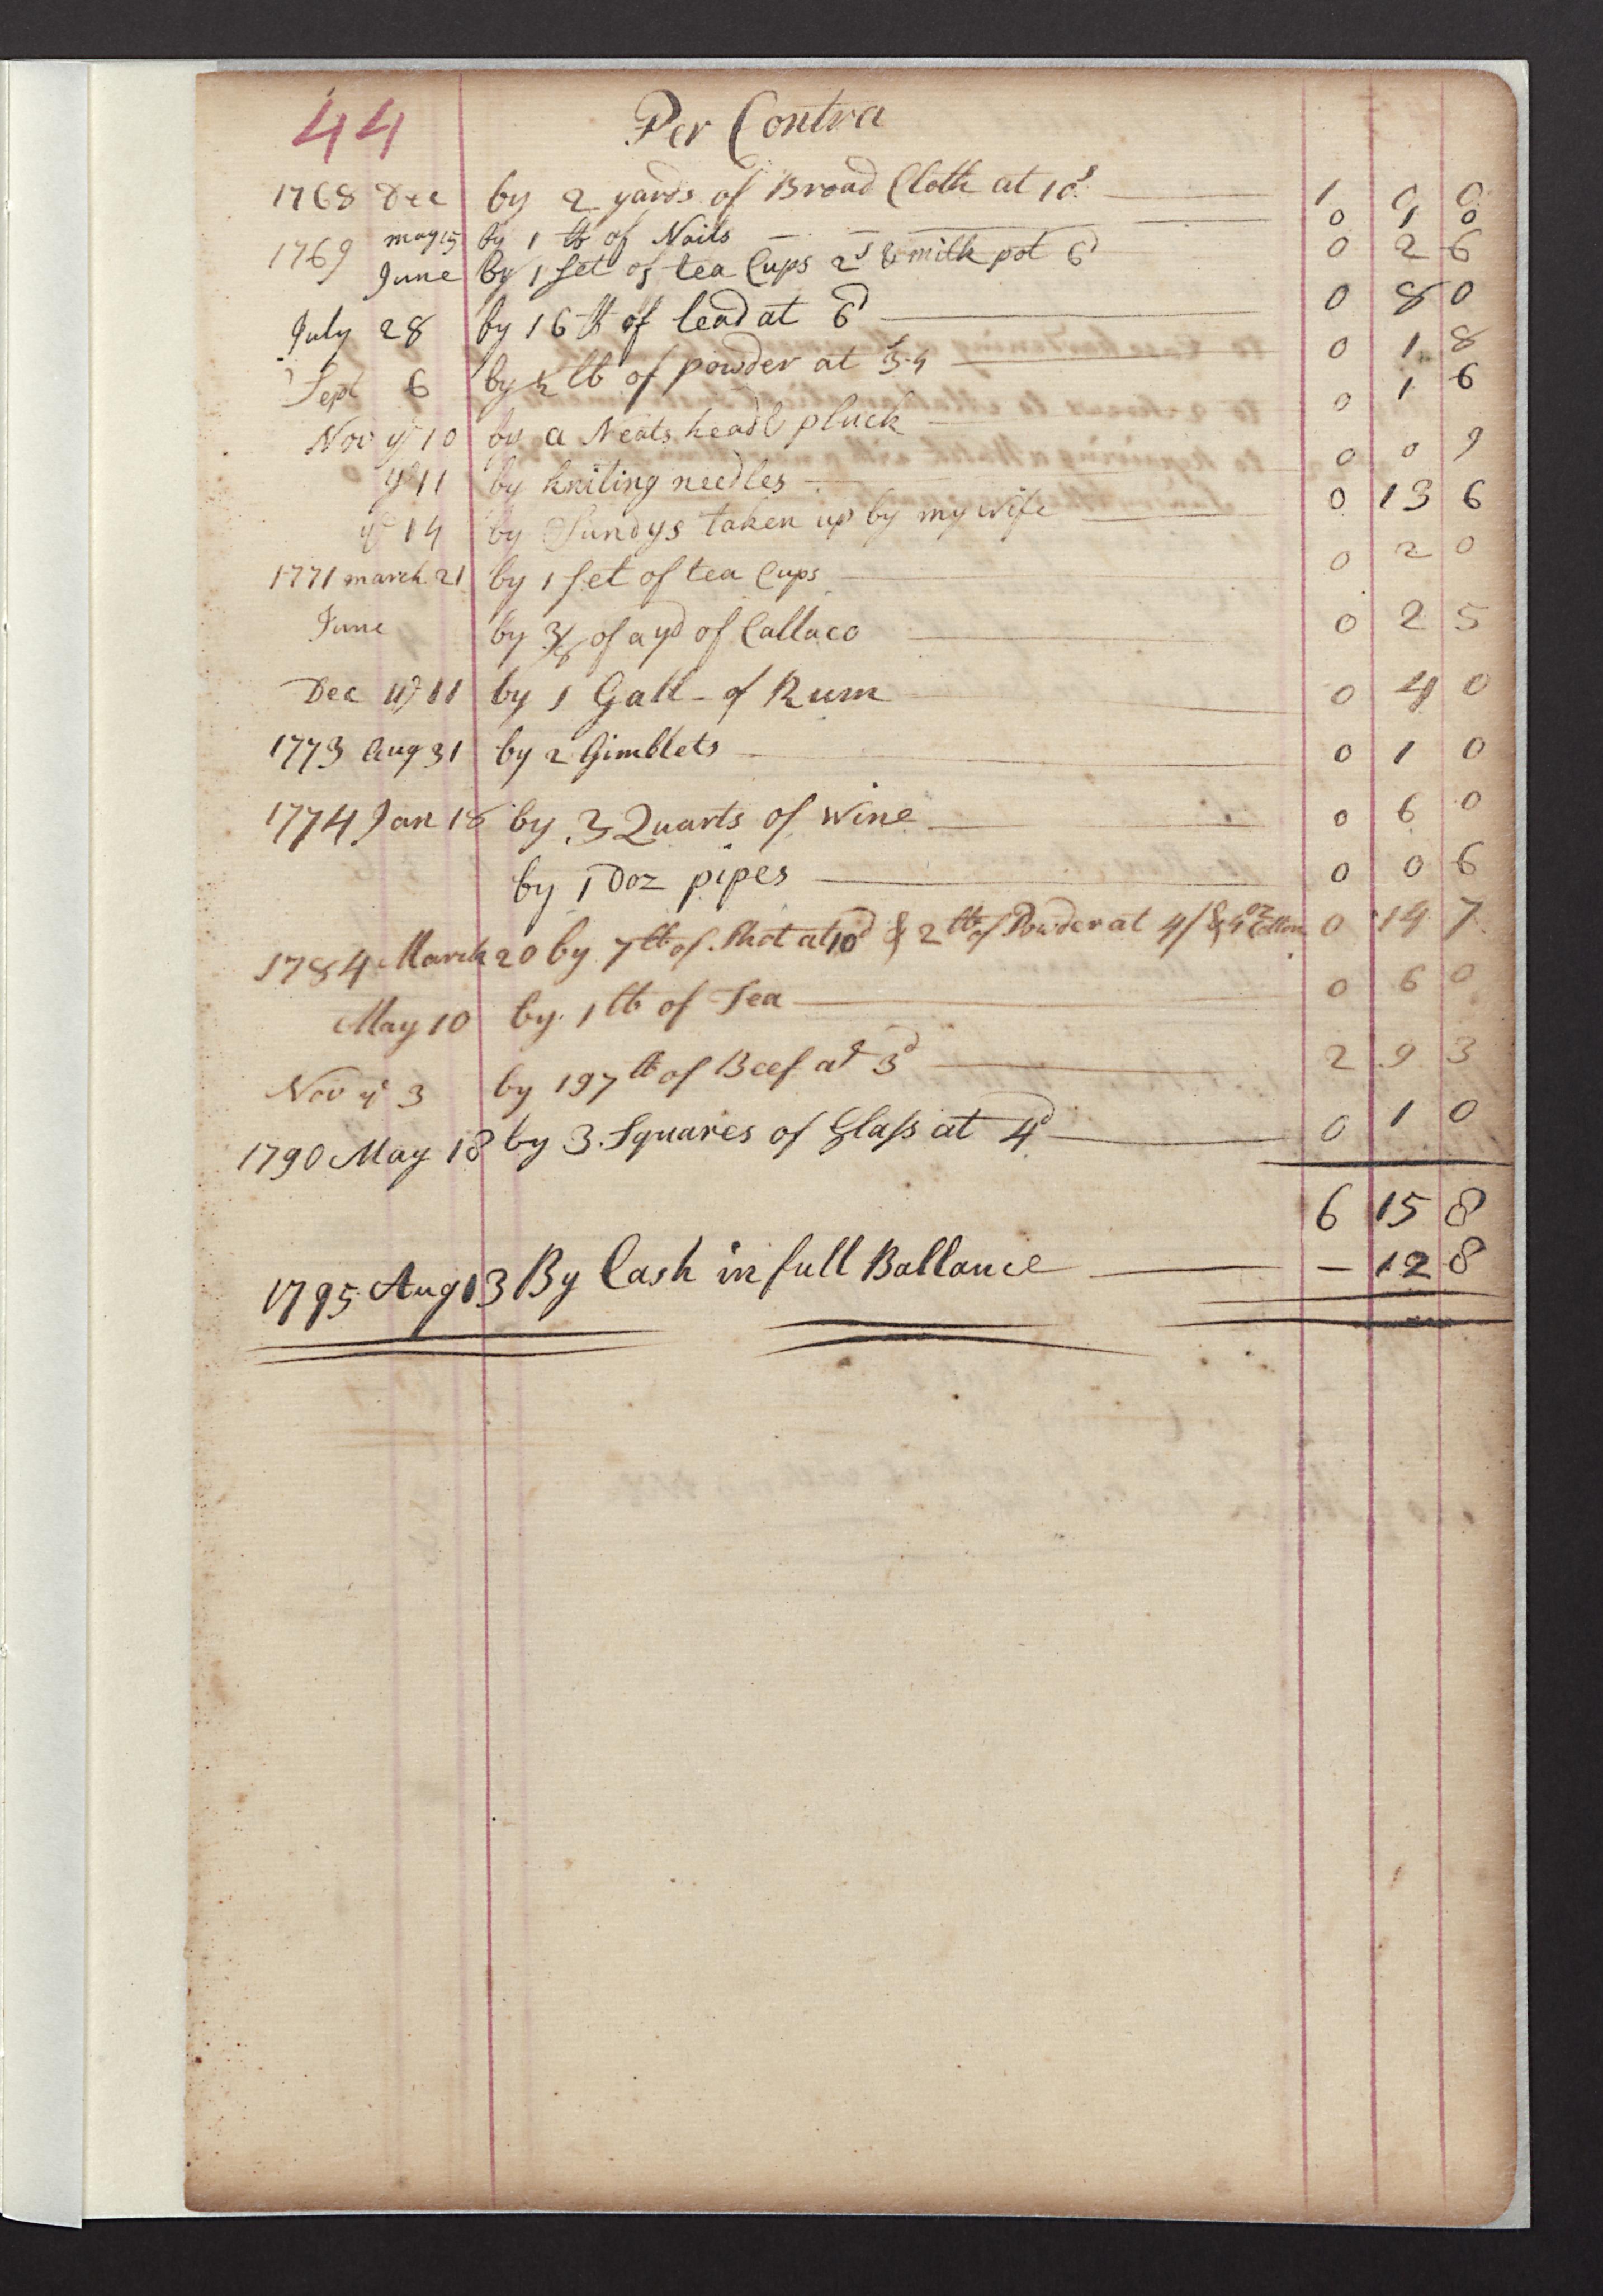 44 Per Contra
1768 Dec by 2 yards of Broad Cloth at 10s 1 0 0
1769 may 15 by 1 lb of Nails 0 1 0
June by 1 set of tea Cups 2s & milk pot 6d 0 2 6
July 28 by 16 lb of lead at 6d 0 8 0
Sept 6 by ½ lb of powder at 3-4 0 1 8
Nov ye 10 by a Neats head & pluck 0 1 6
ye 11 by kniting needles 0 0 9
ye 14 by Sundys taken up by my wife 0 13 6
1771 march 21 by 1 set of tea Cups 0 2 0
June by 3/8 of a yd of Callaco 0 2 5
Dec ye 11 by 1 Gall - of Rum 0 4 0
1773 Aug 31 by 2 Gimblets 0 1 0
1774 Jan 18 by 3 Quarts of wine 0 6 0
by 1 Doz pipes 0 0 6
1784 March 20 by 7 lb of Shot at 10d & 2 lb of Powder at 4/ & 4 oz Cotton 0 14 7
May 10 by 1 lb of Tea 0 6 0
Nov ye 3 by 197 lb of Beef at 3d 2 9 3
1790 May 18 by 3 Squares of Glass at 4d 0 1 0
6 15 8
1795 Aug 13 By Cash in full Ballance – 12 8